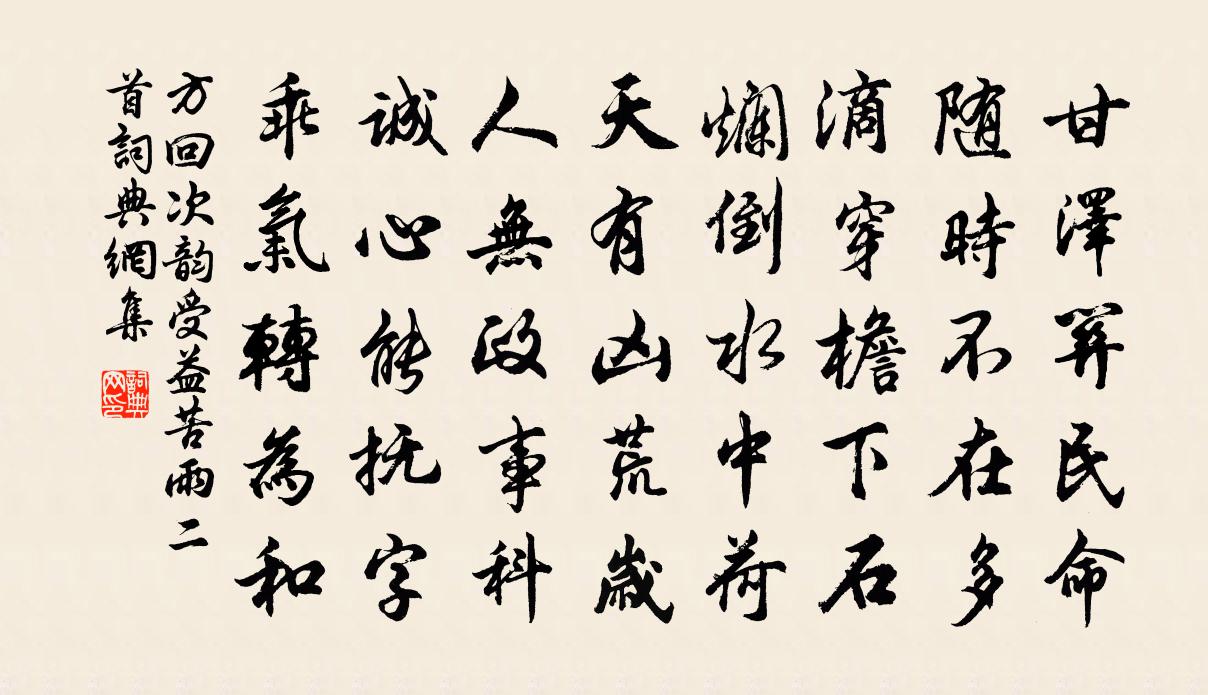 甘澤關民命
随時不在多
滴穿檐下石
爛倒水中荷
天有凶荒歲
人無政事科
誠心能抚字
乖氣轉為和
方回次韵受益苦雨二
首詞典網集
詞典网印